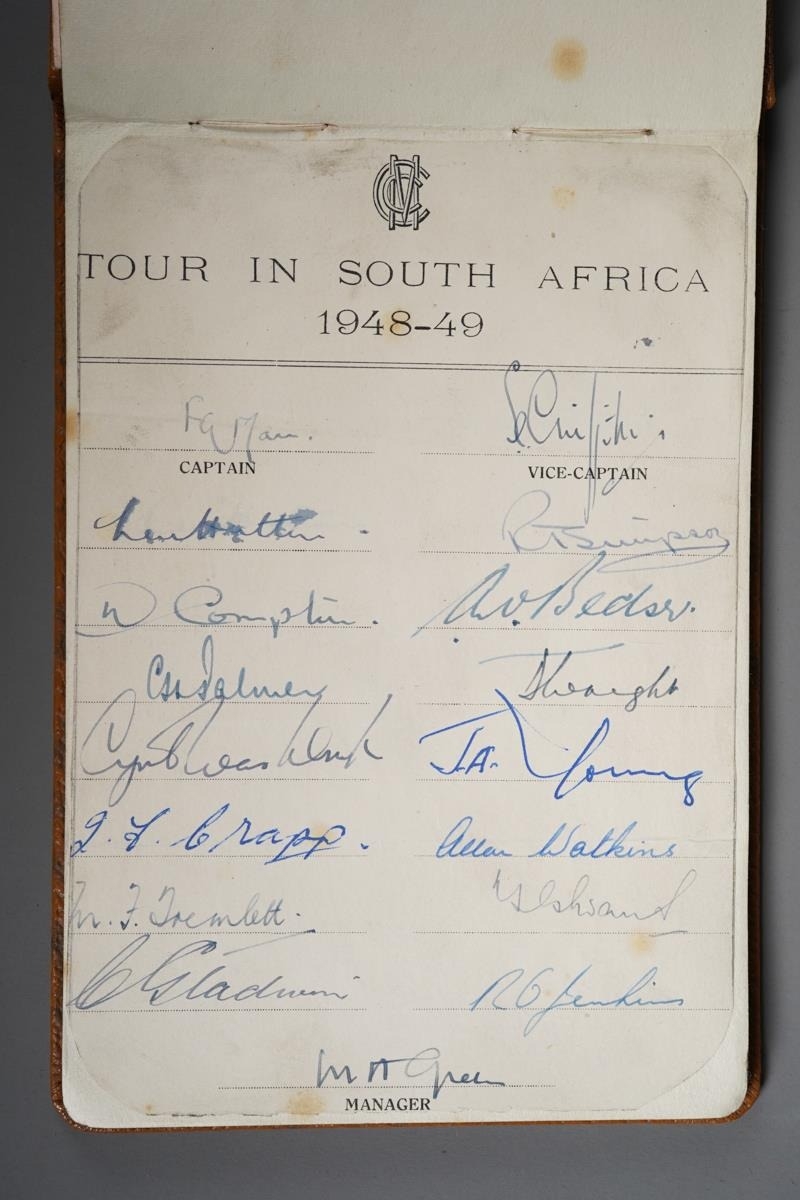 MCC
TOUR IN SOUTH AFRICA
1948-49
F G Mann. S C Griffith
CAPTAIN VICE-CAPTAIN
Len Hutton. R T Simpson
D Compton. A.V. Bedser.
C H Palmer
Cyril Washbrook J.A. Young
J. F. Crapp. Allan Watkins
M. F. Tremlett.
C Gladwin R O Jenkins
M A Green
MANAGER